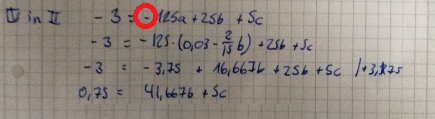 IV in II -3 = -125a + 25b + 5c
-3 = -125·(0,03 - 2/15 b) + 25b + 5c
-3 = -3,75 + 16,667b + 25b + 5c |+3,75
0,75 = 41,667b + 5c